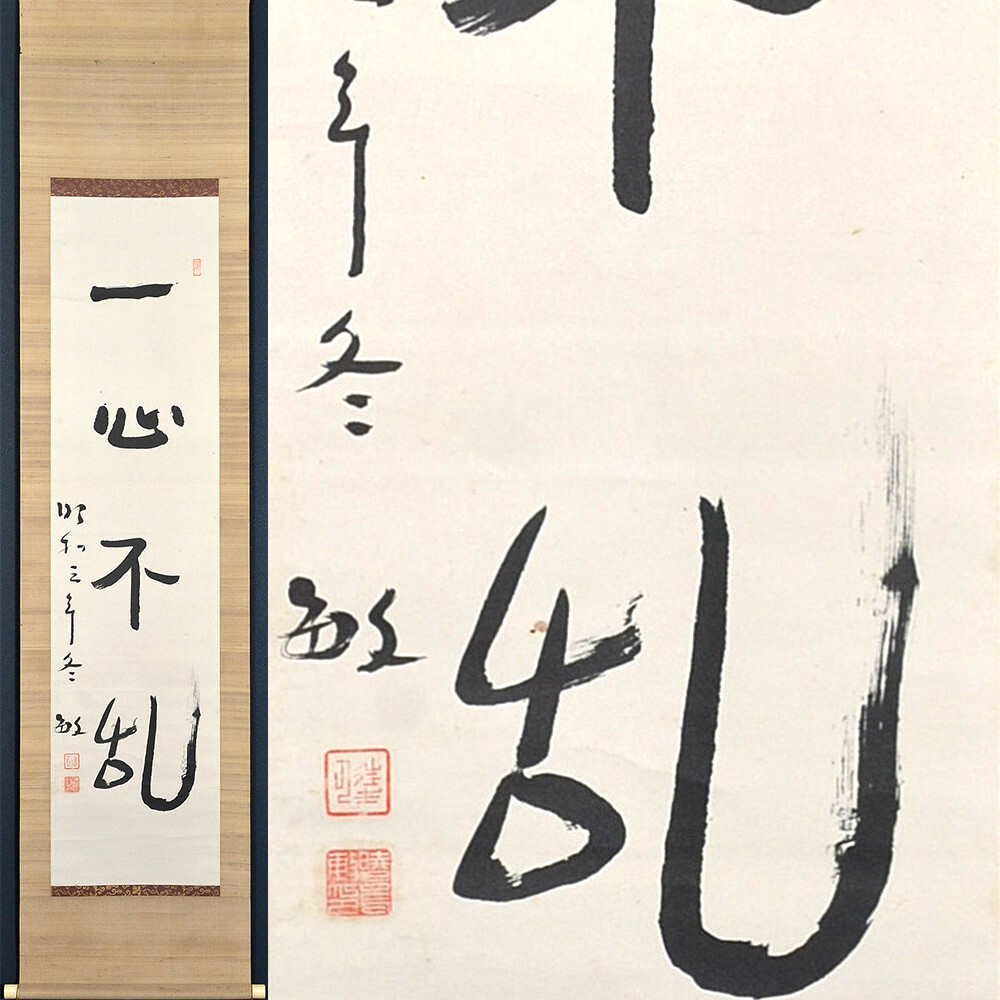 一心不乱
昭和三年冬
敏
年冬
敏
乱